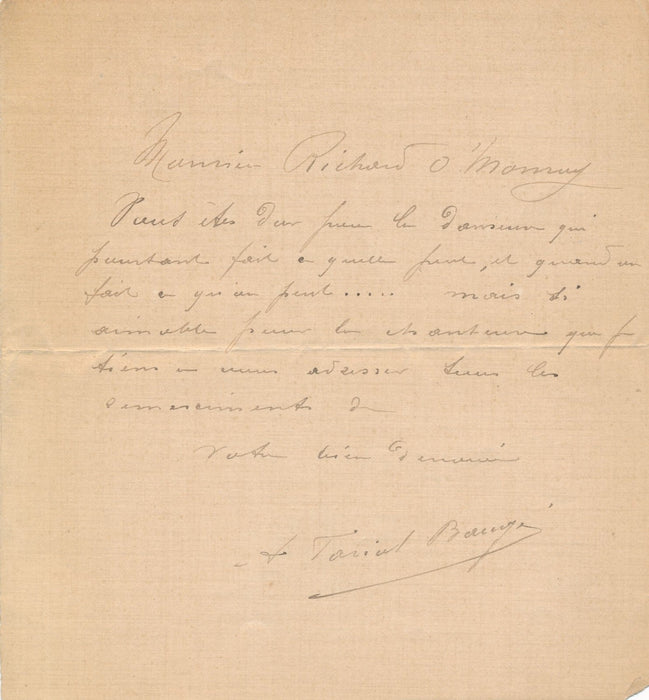 Monsieur Richard O'Monroy
Vous êtes dur pour la danseuse qui
pourtant fait ce qu'elle peut, et quand on
fait ce qu'on peut ..... mais si
aimable pour la chanteuse que je
tiens à vous adresser tous les
remerciements de
Votre bien dévouée
A Tariol Baugé